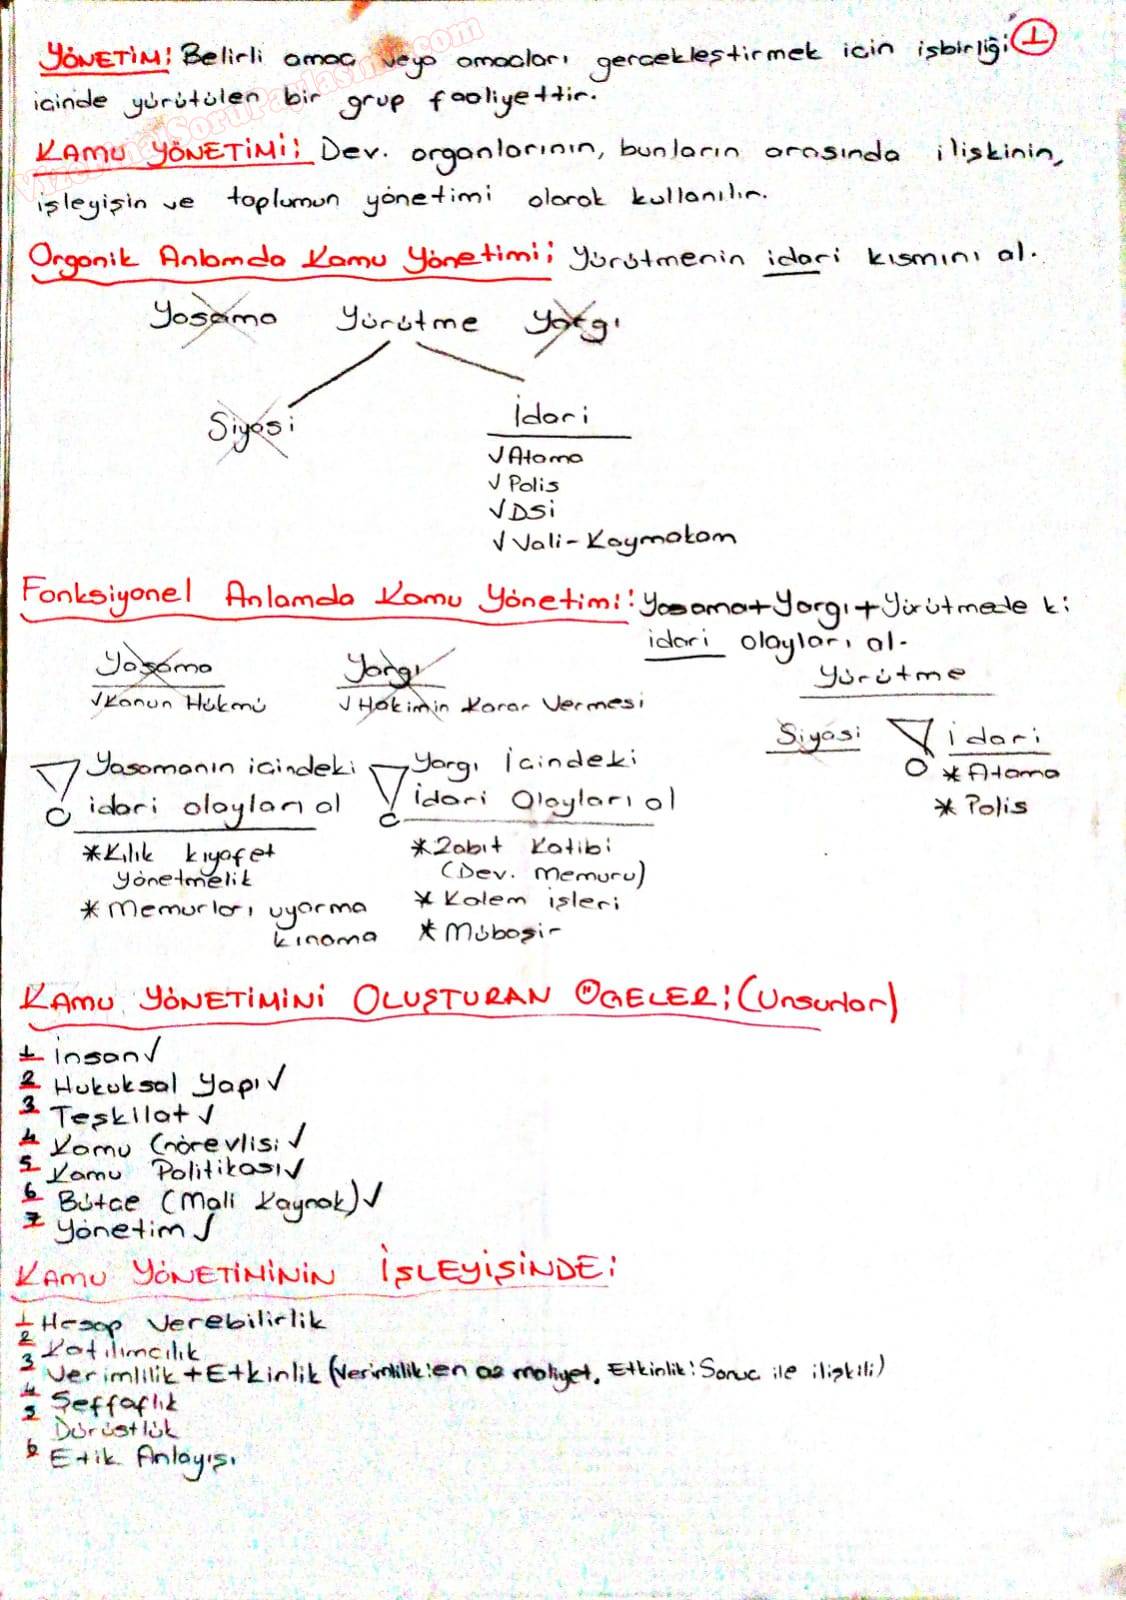 YÖNETİM: Belirli amaç veya amaçları gerçekleştirmek için işbirliği
1
içinde yürütülen bir grup faaliyettir.
KAMU YÖNETİMİ: Dev. organlarının, bunların arasında ilişkinin,
işleyişin ve toplumun yönetimi olarak kullanılır.
Organik Anlamda Kamu Yönetimi; Yürütmenin idari kısmını al.
Yasama Yürütme Yargı
Siyasi İdari
√ Atama
√ Polis
√ DSİ
√ Vali-Kaymakam
Fonksiyonel Anlamda Kamu Yönetimi: Yasama+Yargı+Yürütmede ki
idari olayları al.
Yasama Yargı Yürütme
√ Kanun Hükmü √ Hakimin Karar Vermesi
Siyasi İdari
* Atama
* Polis
Yasamanın içindeki Yargı İçindeki
idari olayları al İdari Olayları al
* Kılık kıyafet * Zabıt Katibi
Yönetmelik (Dev. Memuru)
* Memurları uyarma * Kalem işleri
kınama * Mübaşir
KAMU YÖNETİMİNİ OLUŞTURAN ÖGELER: (Unsurlar)
1 İnsan √
2 Hukuksal Yapı √
3 Teşkilat √
4 Kamu Görevlisi √
5 Kamu Politikası √
6 Bütçe (Mali Kaynak) √
7 Yönetim √
KAMU YÖNETİMİNİN İŞLEYİŞİNDE:
1 Hesap Verebilirlik
2 Katılımcılık
3 Verimlilik + Etkinlik (Verimlilik: en az maliyet, Etkinlik: Sonuç ile ilişkili)
4 Şeffaflık
5 Dürüstlük
6 Etik Anlayışı